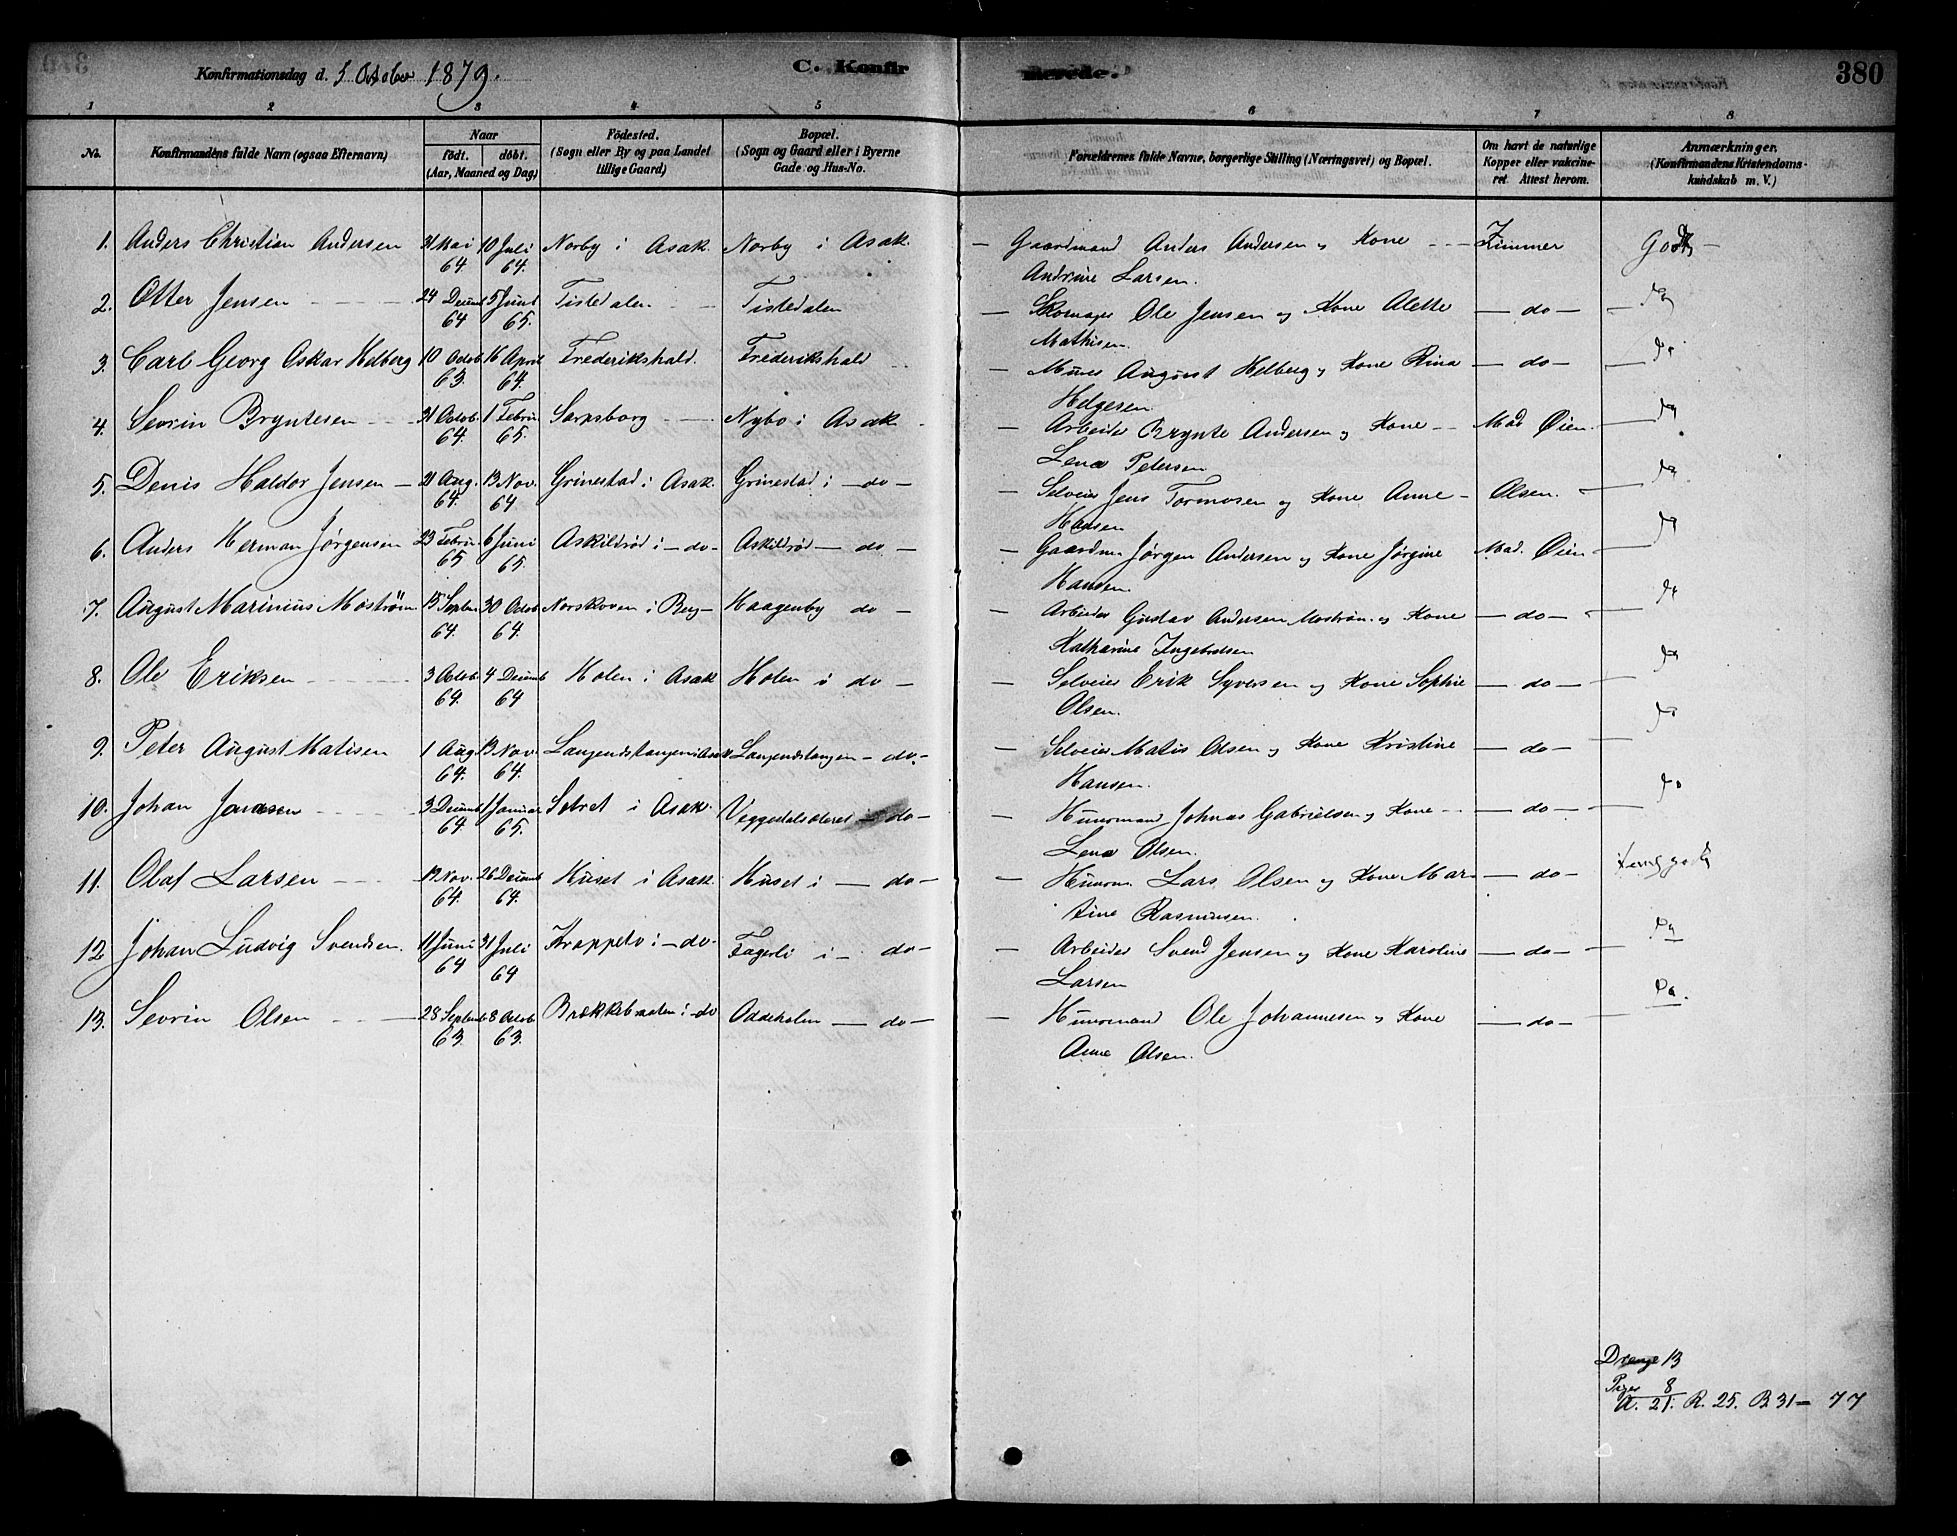 Konfirmationsdag d. 5 October 1879. C. Konfir merede. 380
1 2 3 4 5 6 7 8
No. Konfirmandens fulde Navn (ogsaa Efternavn) Naar födt. döbt. (Aar, Maaned og Dag) Födested. (Sogn eller By og paa Landet tillige Gaard) Bopæl. (Sogn og Gaard eller i Byerne Gade og Hus-No. Forældrenes fulde Navne, borgerlige Stilling (Næringsvei) og Bopæl. Om havt de naturlige Kopper eller vakcineret. Attest herom. Anmærkninger. (Konfirmandens Kristendomskundskab m. V.)
1. Anders Christian Andersen 31 Mai 64 10 Juli 64. Norby i Asak. Norby i Asak. — Gaardmand Anders Andersen og Kone - - - Zimmer Godt —
Andrine Larsen.
2. Otter Jensen - - - 24 Decemb 64 5 Juni 65. Tistedalen - - Tistedalen — Skomager Ole Jensen og Kone Alette — do — — do
Mathisen.
3. Carl Georg Oskar Helberg 10 Octob. 63. 16 April 64. Frederikshald. Frederikshald — Murer August Helberg og Kone Rina — do — — do
Helgesen
4. Sevrin Bryntesen - - 31 Octob. 64 1 Febru. 65. Sarpsborg - - Nybo i Asak — Arbeider Brynte Andersen og Kone - - Mad Øien. — do
Lena Petersen
5. Denis Haldor Jensen — 21 Aug. 64. 13 Nov. 64 Grinestad i Asak. Grinestad i — do — — Selveier Jens Tormosen og Kone Anne — Olsen. — do
Hansen
6. Anders Herman Jørgensen 23 Febru. 65 6 Juni 65. Askildrød i — do — Askildrød — do — — Gaardm. Jørgen Andersen og Kone Jørgine Mad. Øien — do
Hansen.
7. August Marinius Moström 15 Septbr 64. 30 Octob 64. Norskoven i Berg — Haagenby do — — Arbeider Gustav Andersen Moström og Kone — do — — do
Katharine Ingebretsen
8. Ole Eriksen - - - 3 Octob 64. 4 Decemb 64 Holen i Asak Holen i do — — Selveier Erik Syversen og Kone Sophie — do — — do
Olsen.
9. Peter August Matisen 1 Aug. 64. 13 Nov. 64. Langendstangen i Asak Langendstangen — do. — — Selveier Matis Olsen og Kone Kristine — do — — do
Hansen.
10. Johan Jonassen - - - 3 Decemb 64. 1 Januar 65. Setret i Asak. do — — Huusmand Johnas Gabrielsen og Kone - - — do — — do
Lena Olsen.
11. Olaf Larsen - - - 19 Nov. 64. 26 Decemb 64. Huset i Asak. Huset i — do — — Huusm. Lars Olsen og Kone Mar- — do — godt
tine Rasmussen.
12 Johan Ludvig Svendsen. 11 Juni 64 31 Juli 64 Kroppeto i — do — Fagerli i — do — — Arbeider Svend Jensen og Kone Karoline — do — — do
Larsen
13. Sevrin Olsen - - — 28 Septemb 63. 8 Octob 63. Brækkebraaten i — do Oddeholen — do — — Huusmand Ole Johannesen og Kone — do — — do.
Anne Olsen.
Drenge 13
Piger 8
A. 21. R. 25. B 31 — 77